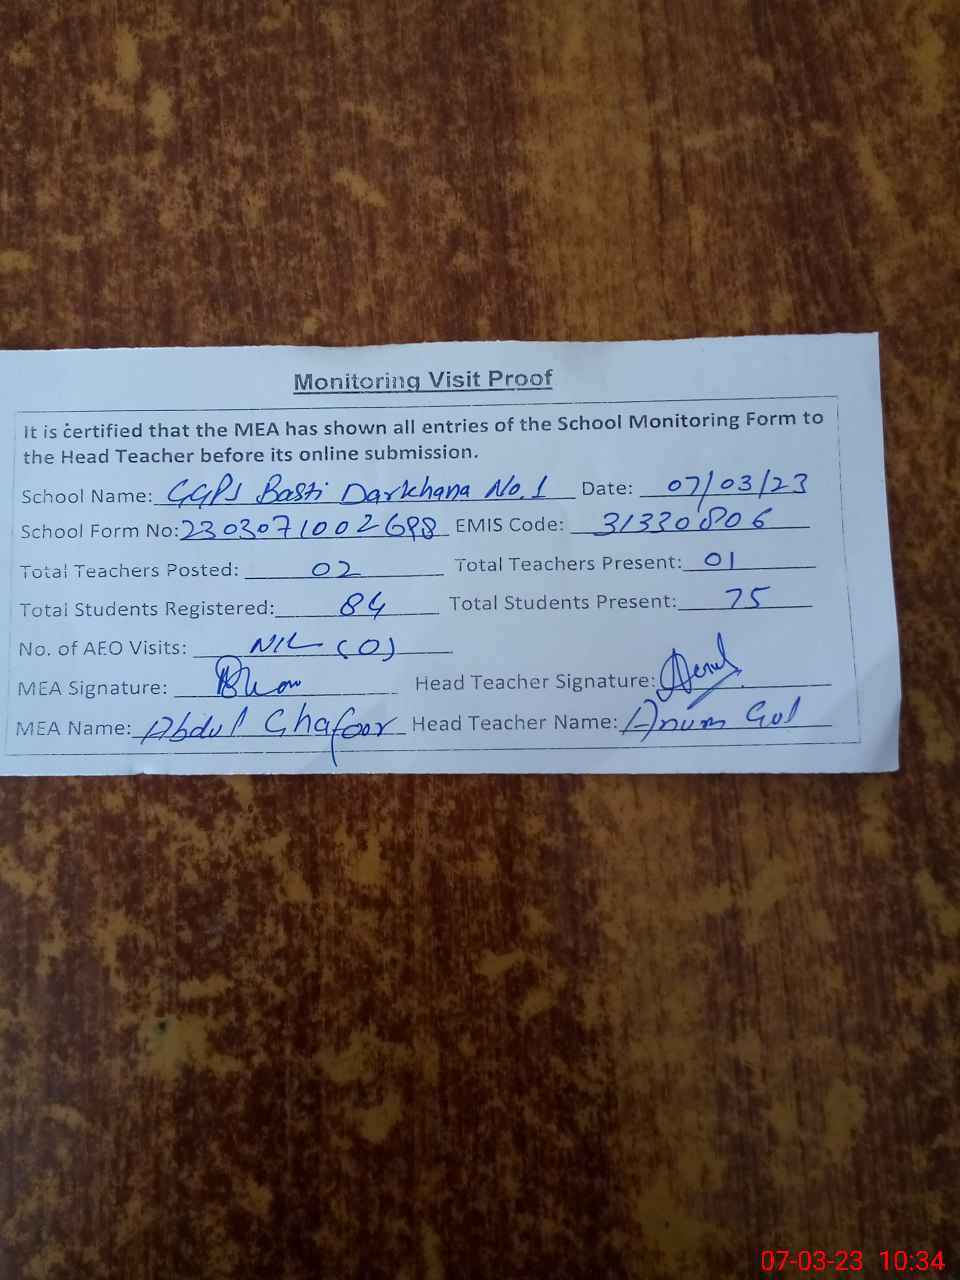 Monitoring Visit Proof
It is certified that the MEA has shown all entries of the School Monitoring Form to
the Head Teacher before its online submission.
School Name: GGPS Basti Darkhana No.1 Date: 07/03/23
School Form No: 2303071002698 EMIS Code: 31330806
Total Teachers Posted: 02 Total Teachers Present: 01
Total Students Registered: 84 Total Students Present: 75
No. of AEO Visits: NIL (0)
MEA Signature: Head Teacher Signature:
MEA Name: Abdul Ghafoor Head Teacher Name: Anum Gul
07-03-23 10:34